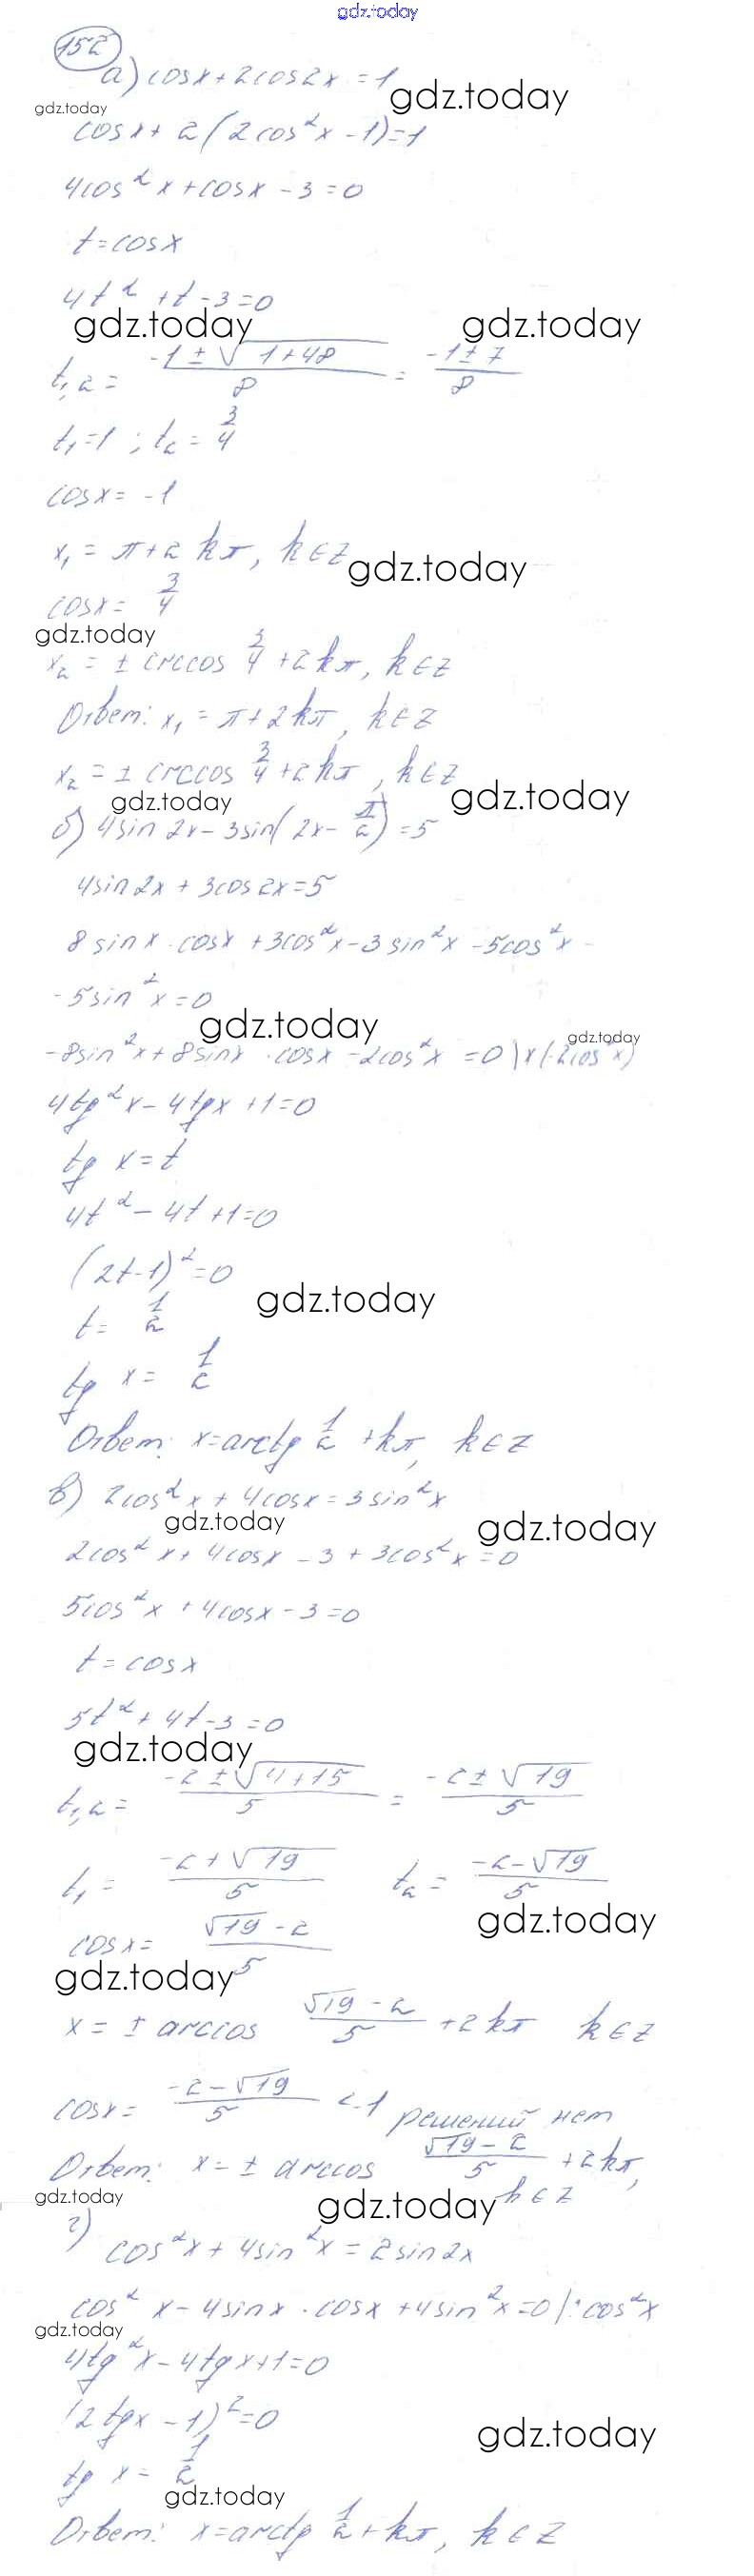 gdz.today
152
а) cosx + 2cos2x = 1
gdz.today
gdz.today
cosx + 2(2cos²x - 1) = 1
4cos²x + cosx - 3 = 0
t = cosx
4t² + t - 3 = 0
gdz.today gdz.today
t₁,₂ = (-1 ± √(1+48))/8 = (-1 ± 7)/8
t₁ = 1 ; t₂ = 3/4
cosx = -1
x₁ = π + 2kπ, k∈Z
gdz.today
cosx = 3/4
gdz.today
x₂ = ± arccos 3/4 + 2kπ, k∈Z
Ответ: x₁ = π + 2kπ, k∈Z
x₂ = ± arccos 3/4 + 2kπ, k∈Z
gdz.today gdz.today
б) 4sin2x - 3sin(2x - π/2) = 5
4sin2x + 3cos2x = 5
8sinx · cosx + 3cos²x - 3sin²x - 5cos²x -
- 5sin²x = 0
gdz.today
gdz.today
-8sin²x + 8sinx · cosx - 2cos²x = 0 | x (-2cos²x)
4tg²x - 4tgx + 1 = 0
tg x = t
4t² - 4t + 1 = 0
(2t - 1)² = 0
gdz.today
t = 1/2
tg x = 1/2
Ответ: x = arctg 1/2 + kπ, k∈Z
в) 2cos²x + 4cosx = 3sin²x
gdz.today gdz.today
2cos²x + 4cosx - 3 + 3cos²x = 0
5cos²x + 4cosx - 3 = 0
t = cosx
5t² + 4t - 3 = 0
gdz.today
t₁,₂ = (-2 ± √(4+15))/5 = (-2 ± √19)/5
t₁ = (-2 + √19)/5 t₂ = (-2 - √19)/5
gdz.today
cosx = (√19 - 2)/5
gdz.today
x = ± arccos (√19 - 2)/5 + 2kπ k∈Z
cosx = (-2 - √19)/5 < -1 решений нет
Ответ: x = ± arccos (√19 - 2)/5 + 2kπ,
k∈Z
gdz.today gdz.today
г) cos²x + 4sin²x = 2sin2x
cos²x - 4sinx · cosx + 4sin²x = 0 | : cos²x
gdz.today
4tg²x - 4tgx + 1 = 0
(2tgx - 1)² = 0
gdz.today
tg x = 1/2
gdz.today
Ответ: x = arctg 1/2 + kπ, k∈Z